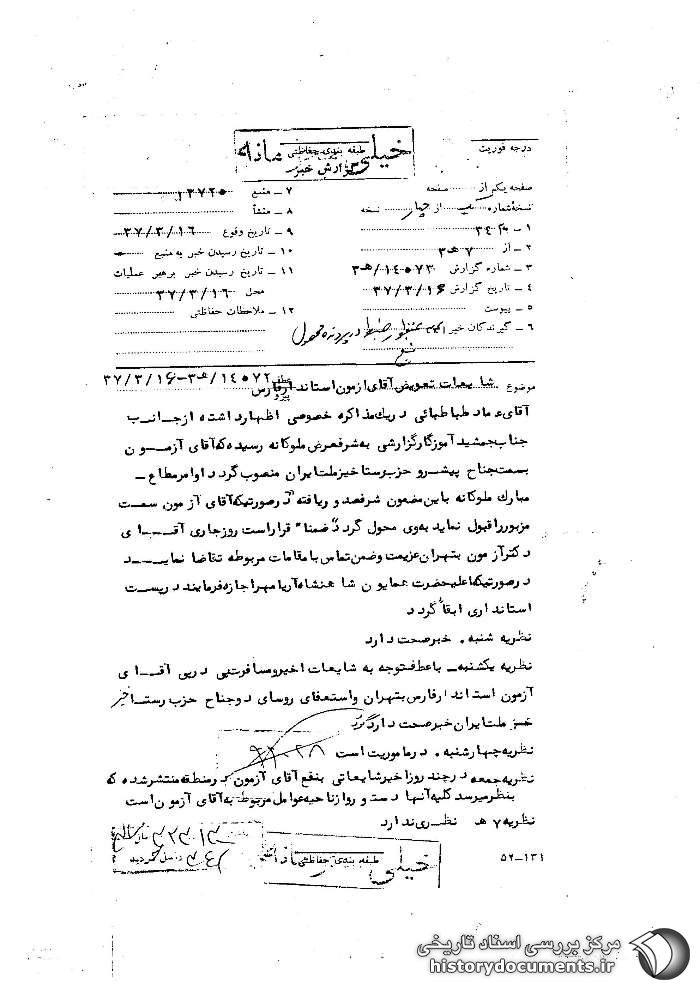 درجه فوریت
خیلی محرمانه
طبقه بندی حفاظتی
گزارش خبر
صفحه یک از صفحه
نسخه شماره یک از چهار نسخه
۱ –
۲ – از ۷ هـ ۳
۳ – شماره گزارش ۱۴۰۵۷۲ / هـ ۳
۴ – تاریخ گزارش ۳۷/۳/۱۶
۵ – پیوست
۶ – گیرندگان خبر
۷ – منبع ۱۳۷۲۵
۸ – منشأ
۹ – تاریخ وقوع ۳۷/۳/۱۶
۱۰ – تاریخ رسیدن خبر به منبع
۱۱ – تاریخ رسیدن خبر برهبر عملیات
محل ۳۷/۳/۱۶
۱۲ – ملاحظات حفاظتی
موضوع شایعات تعویض آقای آزمون استاندار فارس
عطف پیرو ۱۴۰۷۲ / هـ ۳ – ۳۷/۳/۱۶
آقای عماد طباطبائی در یک مذاکره خصوصی اظهار داشته از جانب
جناب جمشید آموزگار گزارشی به شرفعرض ملوکانه رسیده که آقای آزمون
بسمت جناح پیشرو حزب رستاخیز ملت ایران منصوب گردد اوامر مطاع
مبارک ملوکانه باین مضمون شرفصدور یافته "در صورتیکه آقای آزمون سمت
مزبور را قبول نماید به وی محول گردد" ضمنا" قرار است روز جاری آقای
دکتر آزمون بتهران عزیمت وضمن تماس با مقامات مربوطه تقاضا نماید
در صورتیکه اعلیحضرت همایون شاهنشاه آریامهر اجازه فرمایند در پست
استانداری ابقاء گردد
نظریه شنبه . خبر صحت دارد
نظریه یکشنبه – با عطف توجه به شایعات اخیر و مسافرت پی در پی آقای
آزمون استاندار فارس بتهران واستعفای روسای دو جناح حزب رستاخیز
ملت ایران خبر صحت دارد
نظریه چهارشنبه . در ماموریت است
نظریه جمعه در چند روز اخیر شایعاتی بنفع آقای آزمون در منطقه منتشر شده که
بنظر میرسد کلیه آنها دست و روا ز ناحیه عوامل مربوط به آقای آزمون است
نظریه ۷ هـ نظری ندارد
۵۲–۱۳۱
خیلی
طبقه بندی حفاظتی
مرکز بررسی اسناد تاریخی
historydocuments.ir